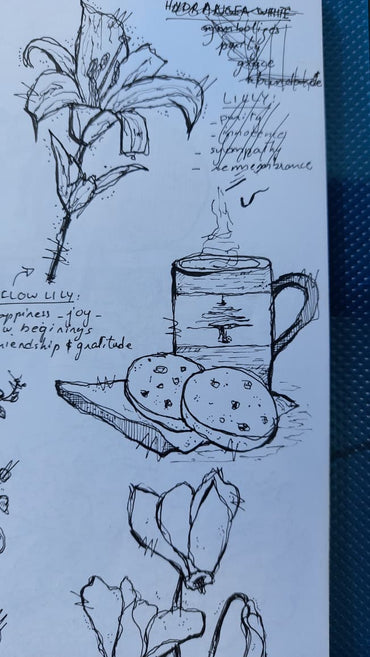 HYDRANGEA WHITE
symbolises
purity
grace
& gratitude
LILLY:
- purity
- innocence
- sympathy
- remembrance
FLOW LILY:
happiness - joy -
w beginings
riendship & gratitude